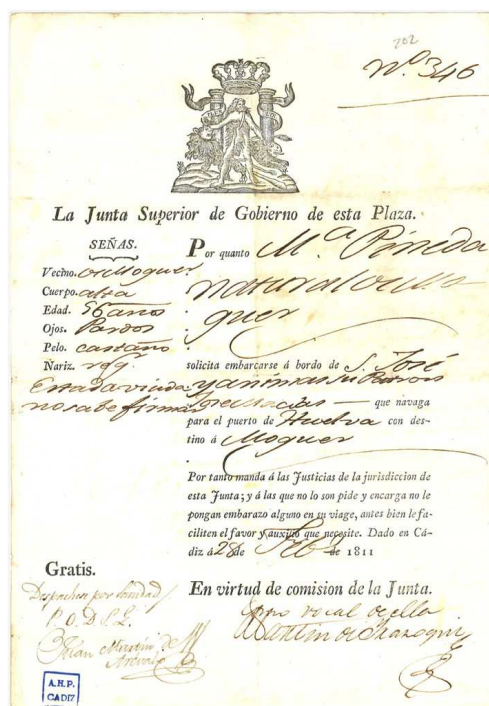 202
Nº. 346
La Junta Superior de Gobierno de esta Plaza.
SEÑAS.
Vecino. de Moguer
Cuerpo. alta
Edad. 56 años
Ojos. Pardos
Pelo. castaño
Ñariz. reg.
Estada viuda
no sabe firmar
Por quanto Mª. Pineda
natural de Mo
guer
solicita embarcarse á bordo de S. José
y animas su Patron
José Macias que navaga
para el puerto de Huelva con des-
tino á Moguer
Por tanto manda á las Justicias de la jurisdiccion de
esta Junta; y á las que no lo son pide y encarga no le
pongan embarazo alguno en su viage, antes bien le fa-
ciliten el favor y auxilio que necesite. Dado en Cá-
diz á 28 de Febº. de 1811
Gratis.
En virtud de comision de la Junta.
Despachese por Sanidad
P. O. D. S. L.
Martin de
Como vocal de ella
Martin de Irazoqui
A.H.P.
CADIZ